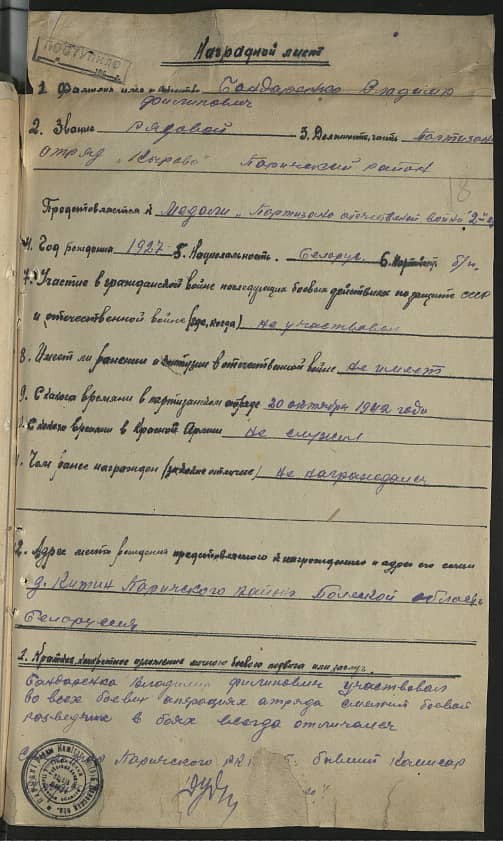 ПОСТУПИЛО
Наградной лист
1. Фамилия имя и отчество Бандаренко Владимир
Филипович
2. Звание рядовой 3. Должность, часть Партизан
отряд „Кирова" Паричский район
18
Представляется к Медали „Партизана отечествен войны 2-й ст
4. Год рождения 1927 5. Национальность. Белорус 6. Партийн. б/п.
7. Участие в гражданской войне последующих боевых действиях по защите СССР
и отечественной войне (где, когда) не участвовал
8. Имеет ли ранения и контузии в отечественной войне не имеет
9. С какого времени в партизанском отряде 20 октября 1942 года
С какого времени в Красной Армии не служил
Чем ранее награжден (за какие отличия) не награждался
2. Адрес места рождения представляемого к награждению и адрес его семьи
д. Китин Паричского района Полеской области
Белоруссия
1. Краткое конкретное изложение личного боевого подвига или заслуг.
Бандаренко Владимир Филипович участвовал
во всех боевых операциях отряда смелый боевой
разведчик в боях всегда отличался
Паричского РК бывший Комисар